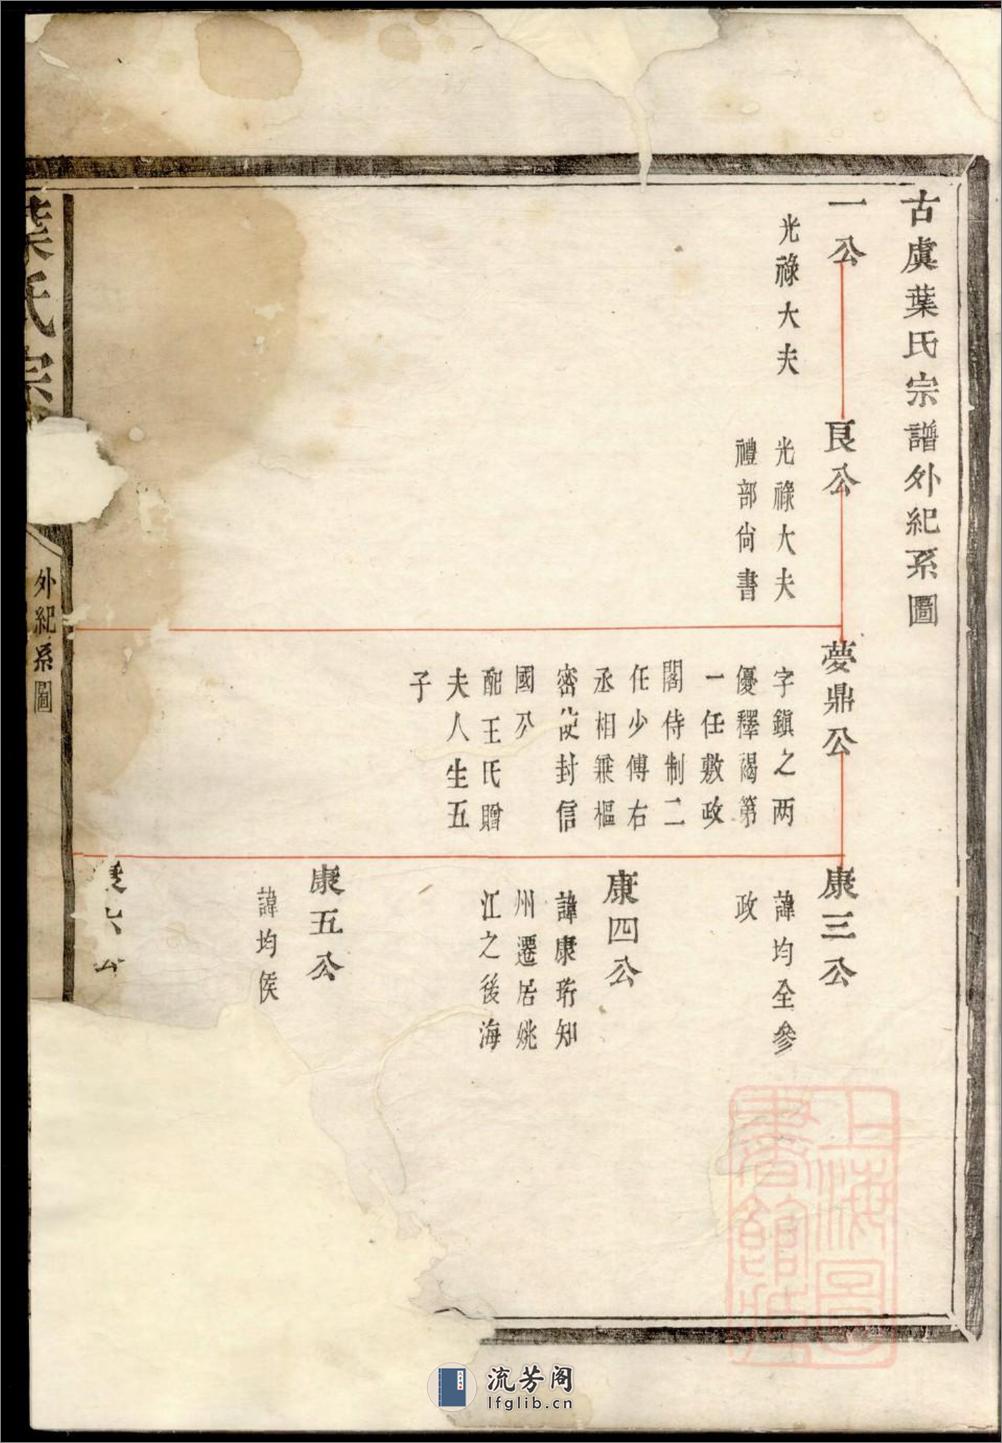 古虞葉氏宗譜外紀系圖
一公
光祿大夫
艮公
光祿大夫
禮部尙書
夢鼎公
字鎮之两
優釋褐第
一任敷政
閣侍制二
任少傅右
丞相兼樞
密使封信
國公
配王氏贈
夫人生五
子
康三公
諱均全參
政
康四公
諱康珩知
州遷居姚
江之後海
康五公
諱均俟
康六公
葉氏宗
外紀系圖
上海圖
書館藏
流芳阁
lfglib.cn